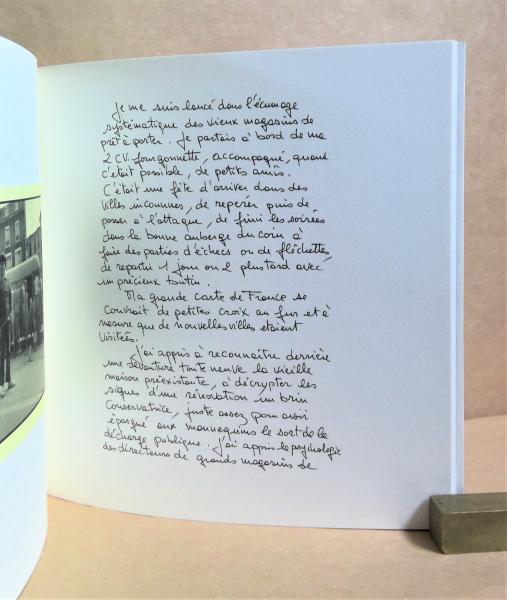 Je me suis lancé dans l'écumage
systématique des vieux magasins de
prêt à porter. Je partais à bord de ma
2 CV. fourgonnette, accompagné, quand
c'était possible, de petits amis.
C'était une fête d'arriver dans des
villes inconnues, de repérer puis de
passer à l'attaque, de finir les soirées
dans la bonne auberge du coin à
faire des parties d'échecs ou de fléchettes,
de repartir 1 jour ou 2 plus tard avec
un précieux butin.
Ma grande carte de France se
couvrait de petites croix au fur et à
mesure que de nouvelles villes étaient
visitées.
J'ai appris à reconnaître derrière
une devanture toute neuve la vieille
maison préexistante, à décrypter les
signes d'une rénovation un brin
conservatrice, juste assez pour avoir
épargné aux mannequins le sort de la
décharge publique. J'ai appris la psychologie
des directeurs de grands magasins de